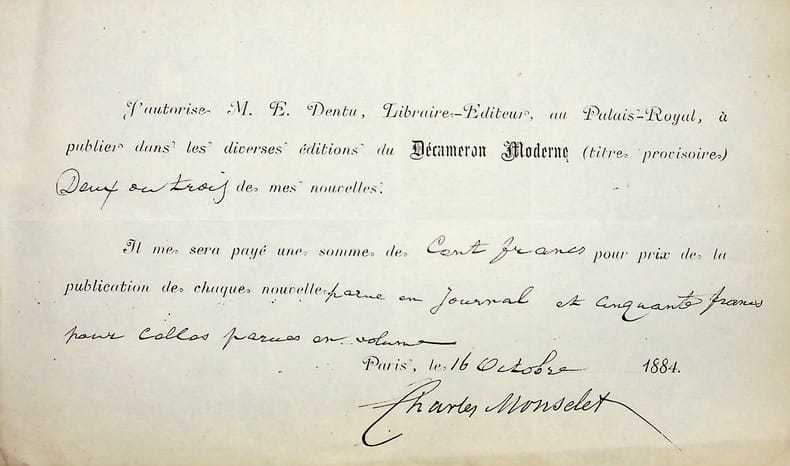 J'autorise M. E. Dentu, Libraire-Editeur, au Palais-Royal, à
publier dans les diverses éditions du Décameron Moderne (titre provisoire)
Deux ou trois de mes nouvelles.
Il me sera payé une somme de Cent francs pour prix de la
publication de chaque nouvelle parue en Journal et cinquante francs
pour celles parues en volume
Paris, le 16 Octobre 1884.
Charles Monselet